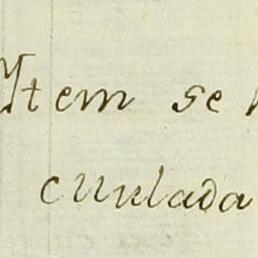 Item se
cunlada